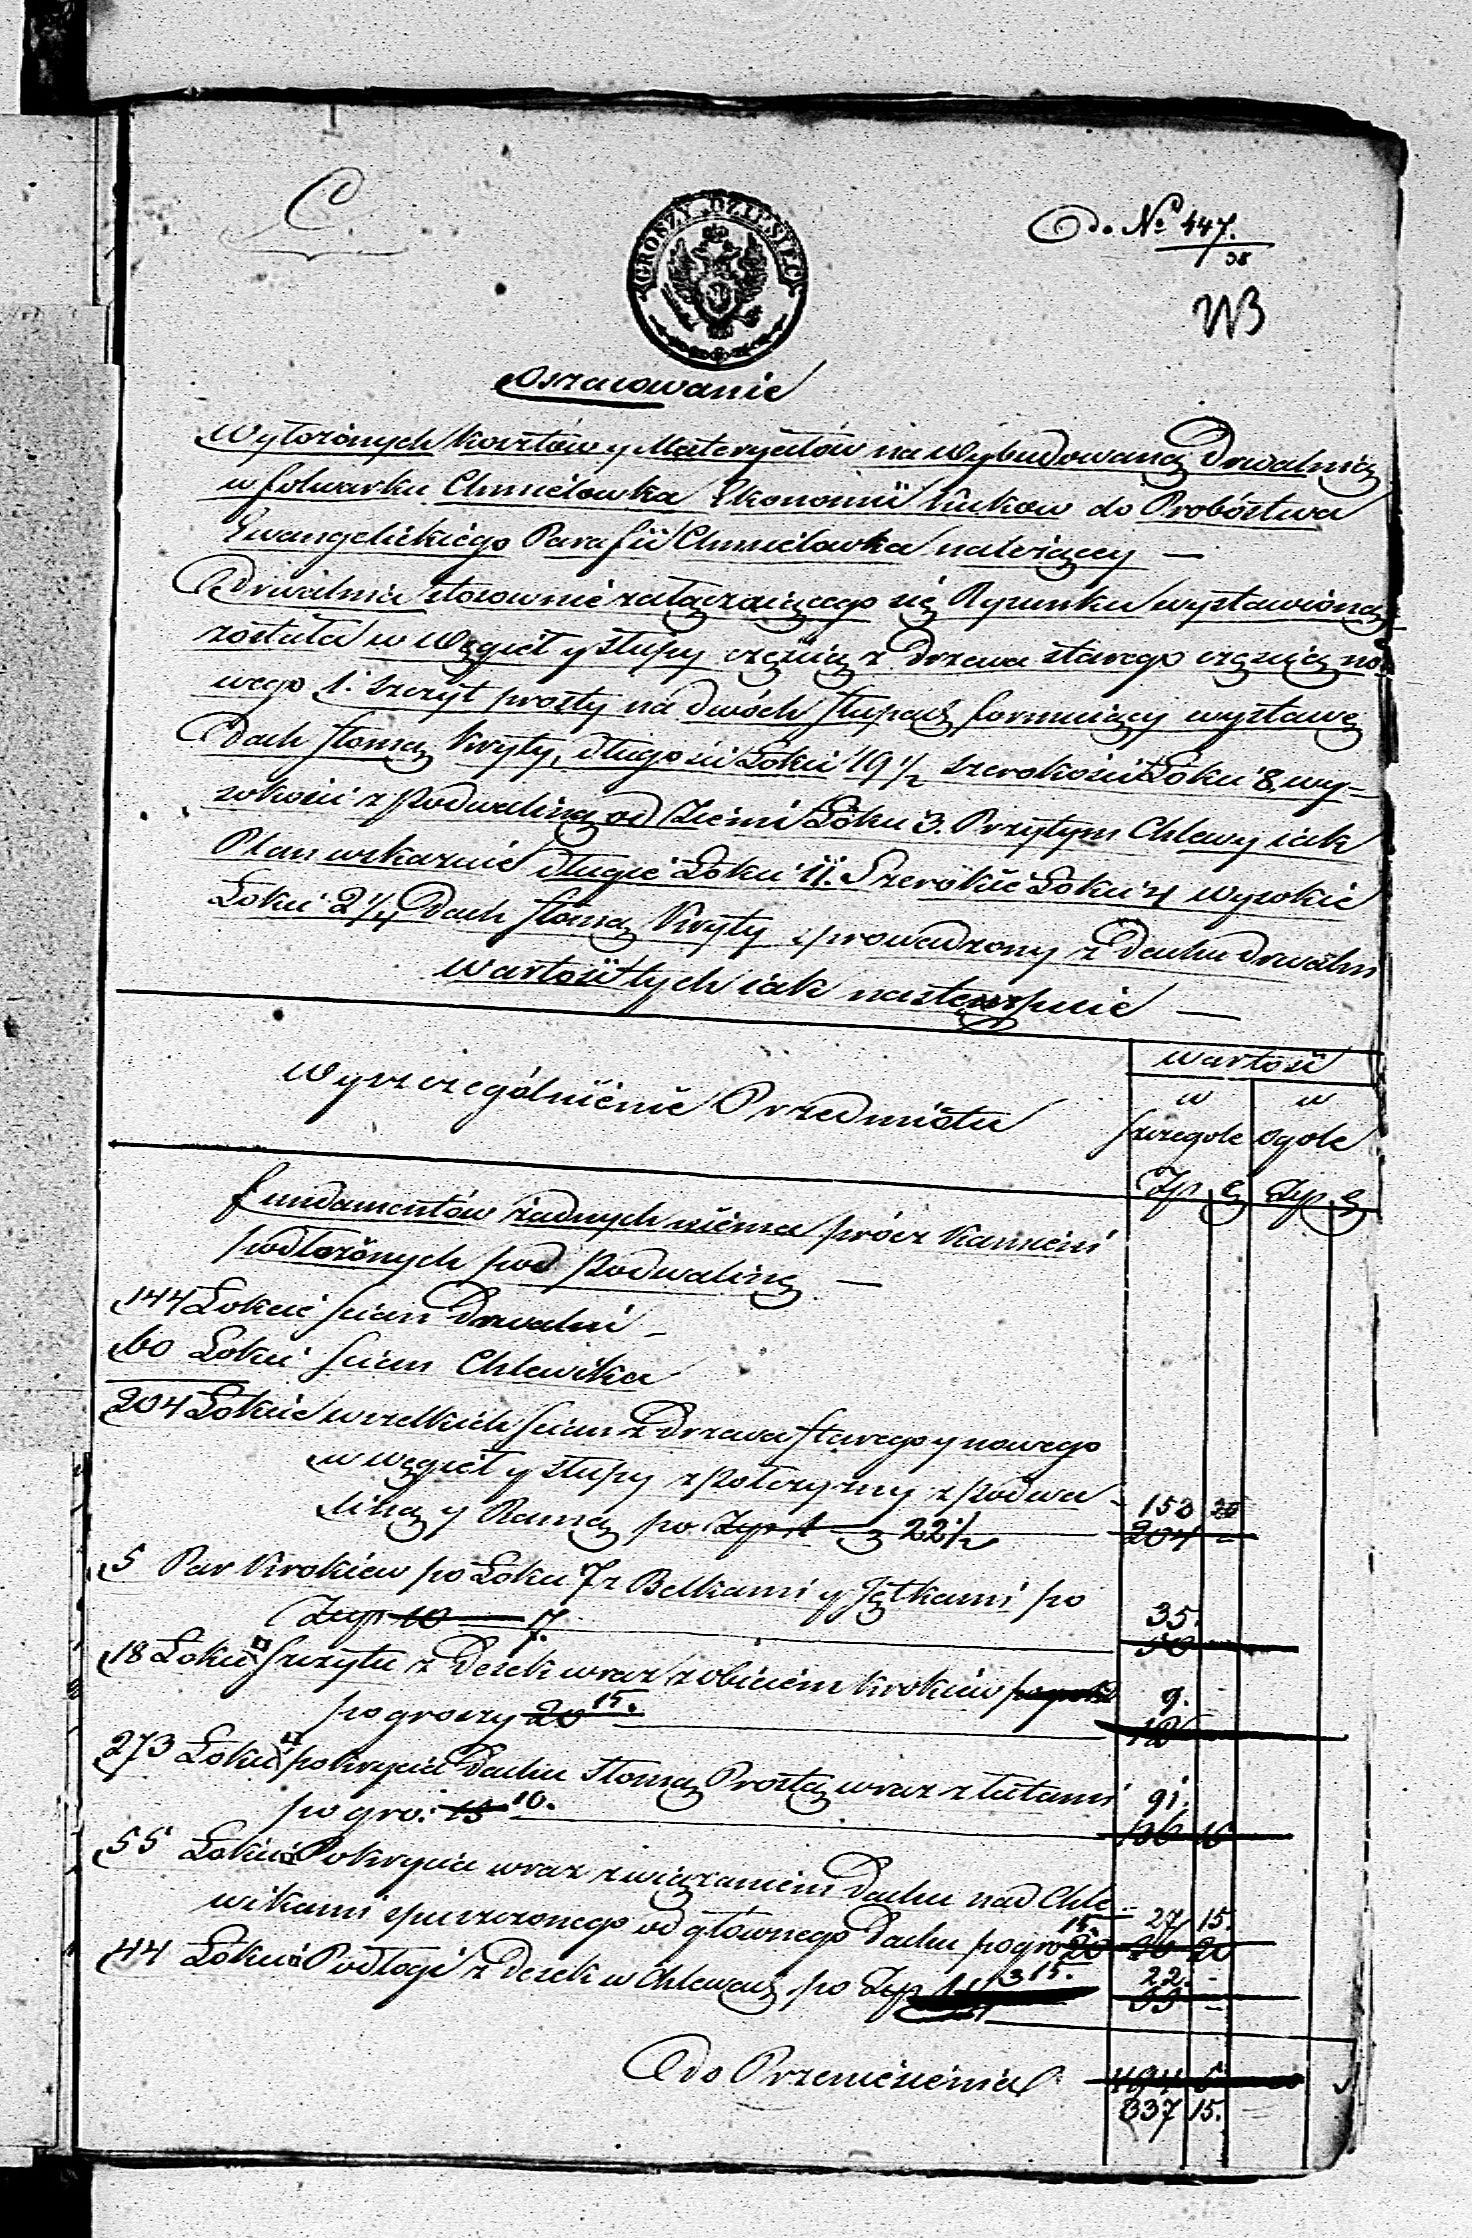 C
GROSZY DZIESIĘĆ
Do No 447.
38
Oszacowanie
Wyłożonych kosztów y Materyałów na wybudowaną Drwalnią
w folwarku Chmielowka Ekonomii Łuków do Probóstwa
Ewangelickiego Parafii Chmielowka należący —
Drwalnia stosownie załączaiącego się Rysunku wystawioną
została w Węgieł y słupy częścią z Drzewa starego częścią no
wego 1. szczyt prosty na dwóch słupach formuiący wystawę
Dach słomą kryty, długości Łokci 19 1/2 szerokości Łokci 8, wy=
sokości z Podwaliną od Ziemi Łokci 3. Przytym Chlewy iak
Plan wskazuie długie Łokci 11. Szerokie Łokci 4 wysokie
Łokci 2 1/4 Dach słomą kryty sprowadzony z Dachu Drwalni
wartość tych iak następuie —
Wyszczególnienie Przedmiotu
Wartość
w szczegole
w ogole
Złp g Złp g
fundamentów żadnych niema prócz kamieni
podłożonych pod Podwaliną —
144 Łokcie ścian Drwalni
60 Łokci ścian Chlewika
204 Łokcie wszelkich ścian z Drzewa starego y nowego
w węgieł y słupy z połczyzny z podwa-
liną y Ramą po Złp 1 — g 22 1/2 153
204 -
5 Par Krokiew po Łokci 7 z Belkami y Jętkami po
Złp 10 — 7. 35.
50
18 Łokci □ Szczytu z Desek wraz z obiciem Krokiew
po groszy 20 15. 9. -
12
273 Łokci □ pokrycia Dachu słomą Prostą wraz z łatami
po gro: 15 10. 91.
136 15
55 Łokci □ Pokrycia wraz z wiązaniem Dachu nad Chle-
wikami spuszczonego od głównego Dachu po gro 20 15. 27 15.
36 20
44 Łokci □ Podłogi z Desek w Chlewach po Złp 15. 22. -
33 -
Do Przeniesienia
494 5
337 15.